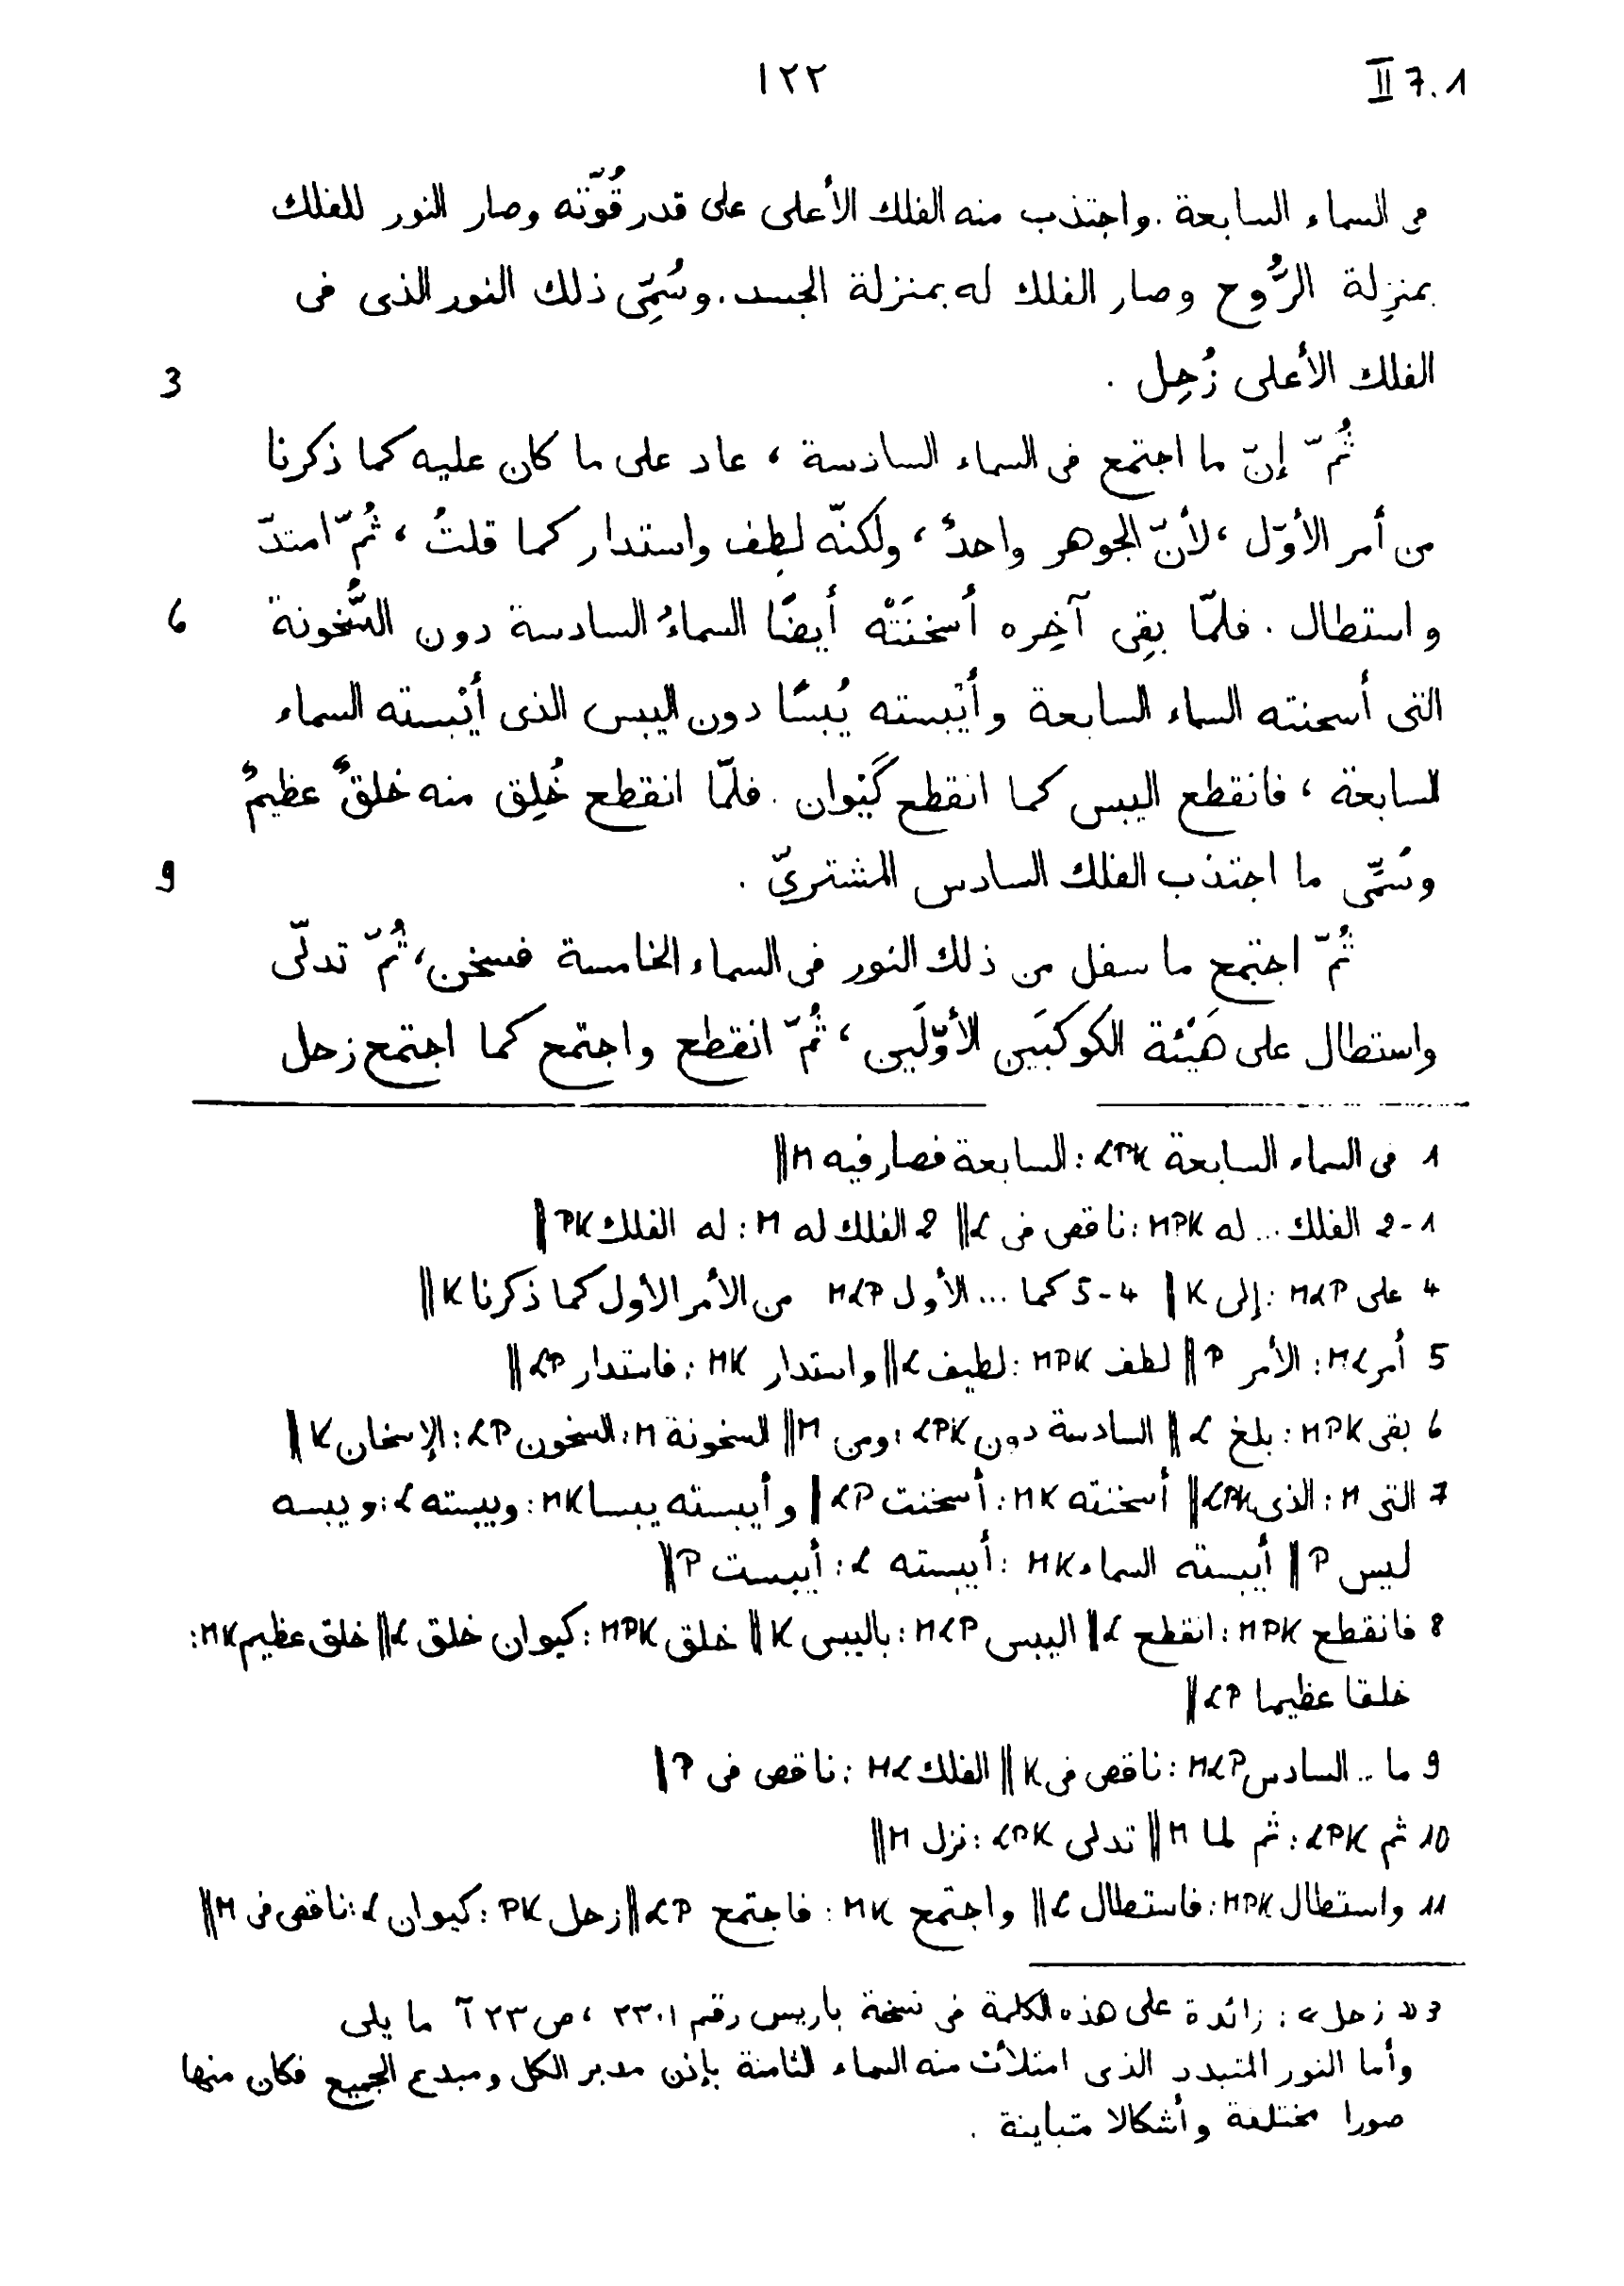 ١٢٢ II 7.1
فى السماء السابعة . واجتذب منه الفلك الأعلى على قدر قُوّته وصار النور للفلك
بمنزِلة الرُّوح وصار الفلك له بمنزلة الجسد . وسُمِّى ذلك النور الذى فى
الفلك الأعلى زُحِل . 3
ثُمّ إنّ ما اجتمع فى السماء السادسة ، عاد على ما كان عليه كما ذكرنا
من أمر الأوّل ، لأنّ الجوهر واحدٌ ، ولكنّه لطِف واستدار كما قلتُ ، ثُمّ امتدّ
واستطال . فلمّا بقِى آخِره أسخنَتْه أيضًا السماءُ السادسة دون السُّخونة 6
التى أسخنته السماء السابعة وأيْبسته يُبسًا دون اليبس الذى أيْبسته السماء
السابعة ، فانقطع اليبس كما انقطع كَيْوان . فلمّا انقطع خُلِق منه خلقٌ عظيمٌ
وسُمِّى ما اجتذب الفلك السادس المشترىّ . 9
ثُمّ اجتمع ما سفل من ذلك النور فى السماء الخامسة فسخن ، ثُمّ تدلّى
واستطال على هَيْئة الكوكبَين الأوّلَين ، ثُمّ انقطع واجتمع كما اجتمع زحل
1 فى السماء السابعة LPK : السابعة فصار فيه M ||
1-2 الفلك ... له MPK : ناقص فى L || 2 الفلك له M : له الفلك PK ||
4 على MLP : إلى K || 4-5 كما ... الأول MLP من الأمر الأول كما ذكرنا K ||
5 أمر ML : الأمر P || لطف MPK : لطيف L || واستدار MK : فاستدار LP ||
6 بقى MPK : بلغ L || السادسة دون LPK : ومن M || السخونة M : السخون LP : الإسخان K ||
7 التى M : الذى LPK || أسخنته MK : أسخنت LP || وأيبسته يبسا MK : ويبسته L : ويبسه
ليس P || أيبسته السماء MK : أيبسته L : أيبست P ||
8 فانقطع MPK : انقطع L || اليبس MLP : باليبس K || خلق MPK : كيوان خلق L || خلق عظيم MK :
خلقا عظيما LP ||
9 ما .. السادس MLP : ناقص فى K || الفلك ML : ناقص فى P ||
10 ثم LPK : ثم لما M || تدلى LPK : نزل M ||
11 واستطال MPK : فاستطال L || واجتمع MK : فاجتمع LP || زحل PK : كيوان L : ناقص فى M ||
3 « زحل » : زائدة على هذه الكلمة فى نسخة باريس رقم ٢٣٠١ ، ص ٢٣ آ ما يلى
وأما النور المتبدد الذى امتلأت منه السماء الثامنة بإذن مدبر الكل ومبدع الجميع فكان منها
صورا مختلفة وأشكالا متباينة .